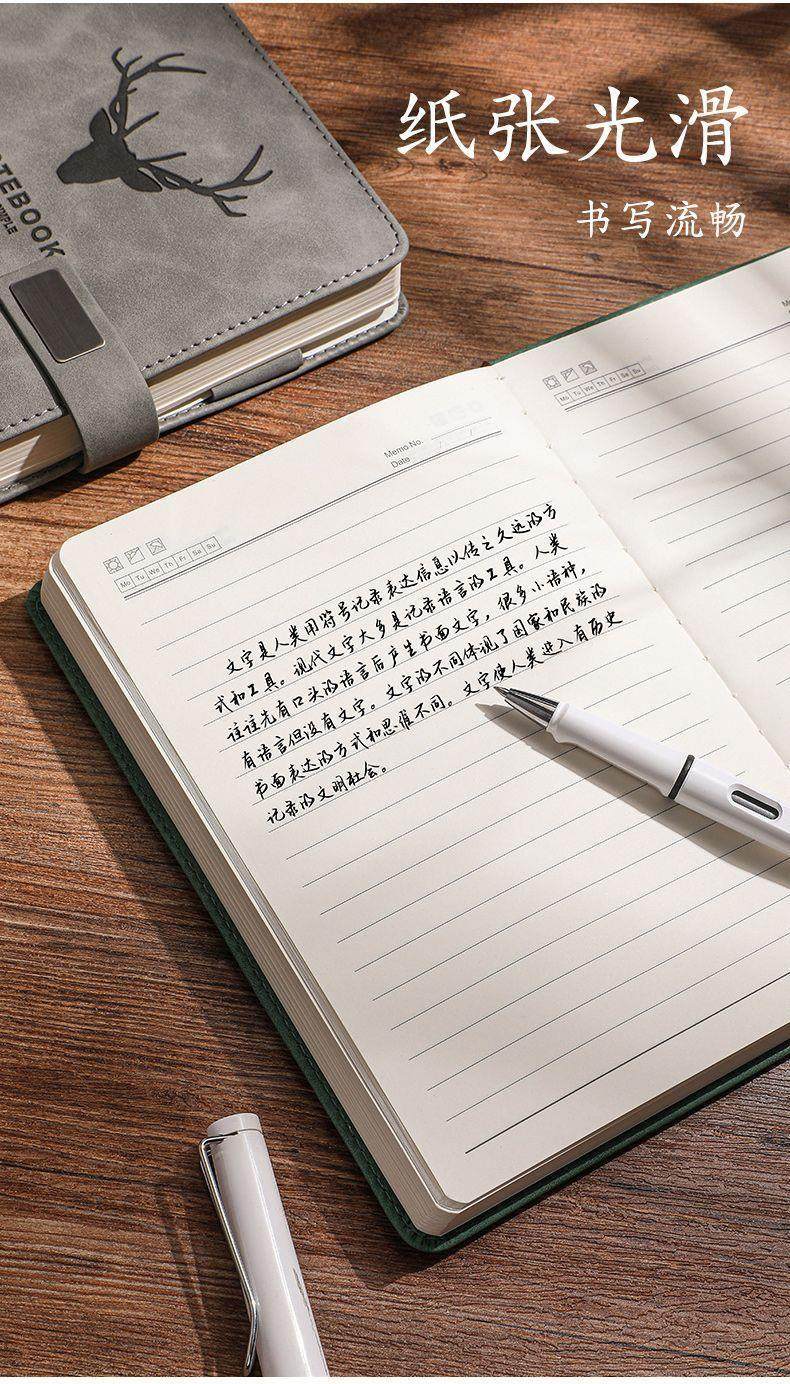 纸张光滑
书写流畅
NOTEBOOK
Memo No.
Date
Mo Tu We Th Fr Sa Su
文字是人类用符号记录表达信息以传之久远的方
式和工具。现代文字大多是记录语言的工具。人类
往往先有口头的语言后产生书面文字，很多小语种，
有语言但没有文字。文字的不同体现了国家和民族的
书面表达的方式和思维不同。文字使人类进入有历史
记录的文明社会。
Mo Tu We Th Fr Sa Su